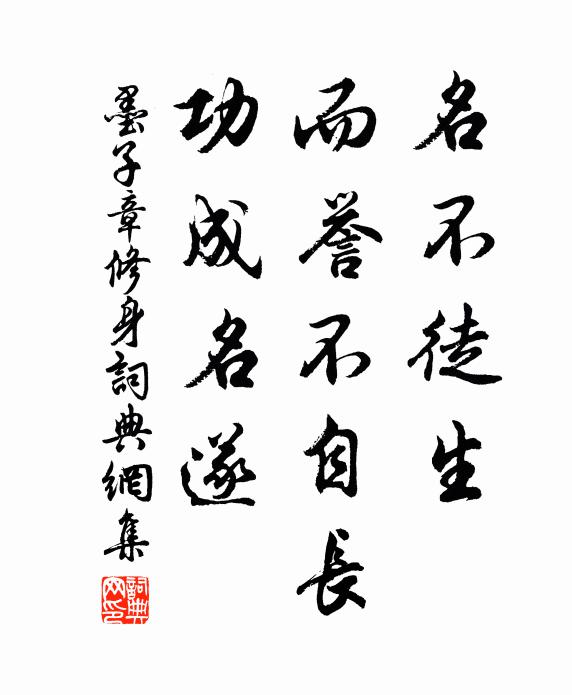 名不徒生
而誉不自長
功成名遂
墨子章修身詞典網集
詞典网印